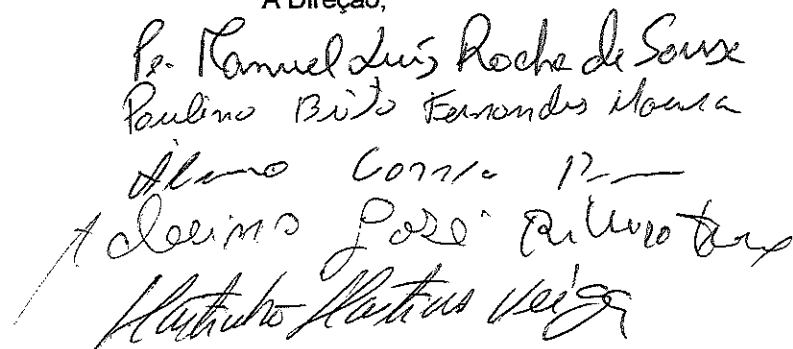 A Direção,
Pe. Manuel Luís Rocha de Sousa
Paulino Brito Fernandes Moura
Correia
Adelino José Ribeiro
Martinho Martins Veiga